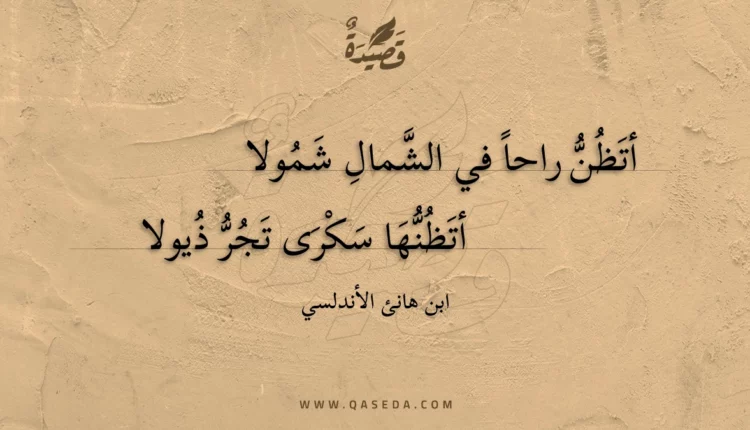 قَصِيدَةٌ
أتَظُنُّ راحاً في الشَّمالِ شَمُولا
أتَظُنُّهَا سَكْرَى تَجُرُّ ذُيولا
ابن هانئ الأندلسي
WWW.QASEDA.COM